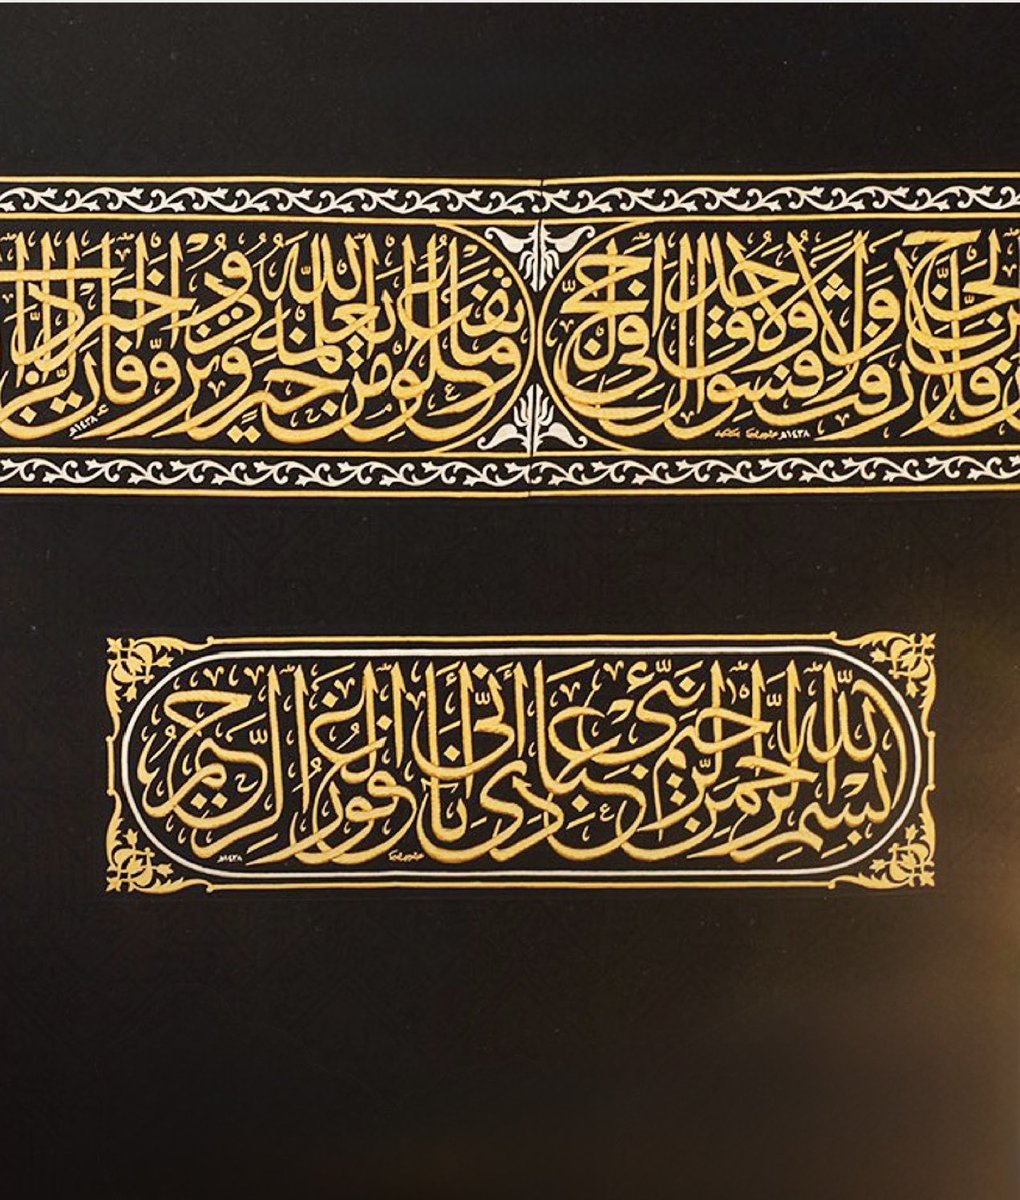 الحج فلا رفث ولا فسوق ولا جدال في الحج
وما تفعلوا من خير يعلمه الله وتزودوا فإن خير الزاد
١٤٣٨هـ
١٤٣٨هـ
بسم الله الرحمن الرحيم نبئ عبادي أني أنا الغفور الرحيم
١٤٣٨هـ